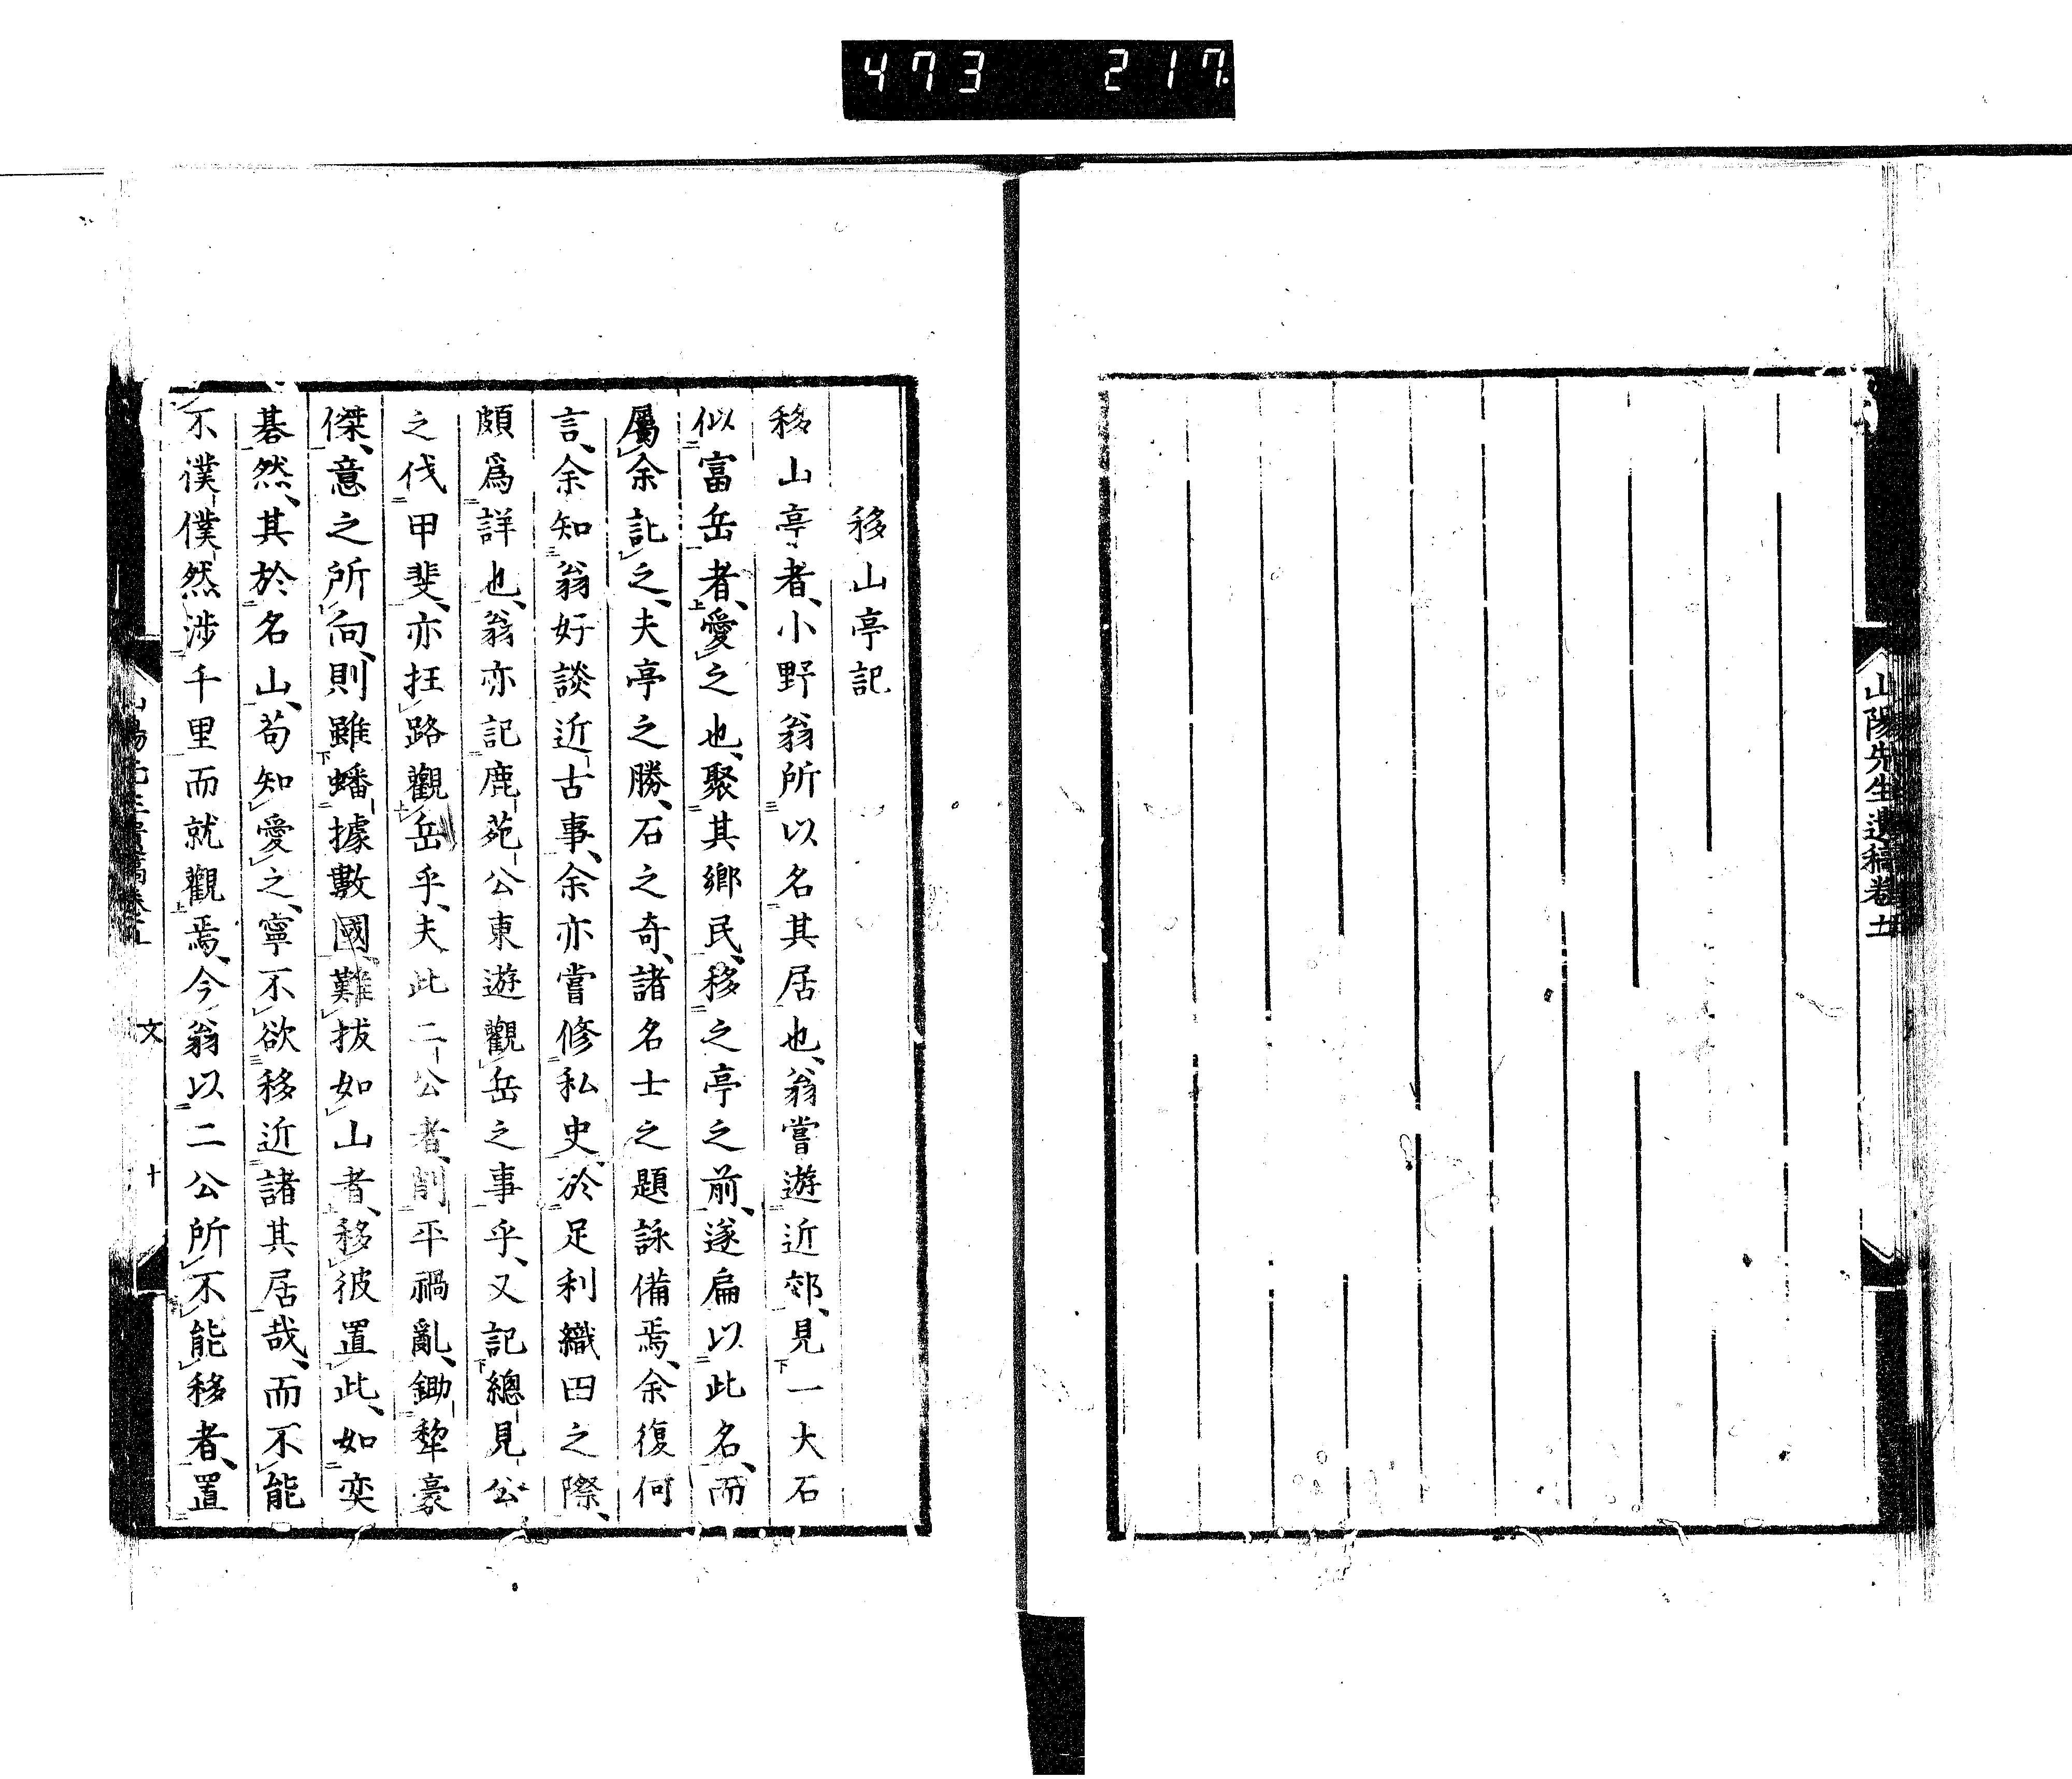 473 217
山陽先生遺稿卷五
移山亭記
移山亭者、小野翁所以名其居也、翁嘗遊近郊、見一大石
似富岳者、愛之也、聚其鄉民、移之亭之前、遂扁以此名、而
屬余記之、夫亭之勝、石之奇、諸名士之題詠備焉、余復何
言、余知翁好談近古事、余亦嘗修私史、於足利織田之際、
頗爲詳也、翁亦記鹿苑公東遊觀岳之事乎、又記總見公
之伐甲斐、亦枉路觀岳乎、夫此二公者、削平禍亂、鋤犂豪
傑、意之所向、則雖蟠據數國、難拔如山者、移彼置此、如奕
碁然、其於名山、苟知愛之、寧不欲移近諸其居哉、而不能
不僕僕然涉千里而就觀焉、今翁以二公所不能移者、置
文
十